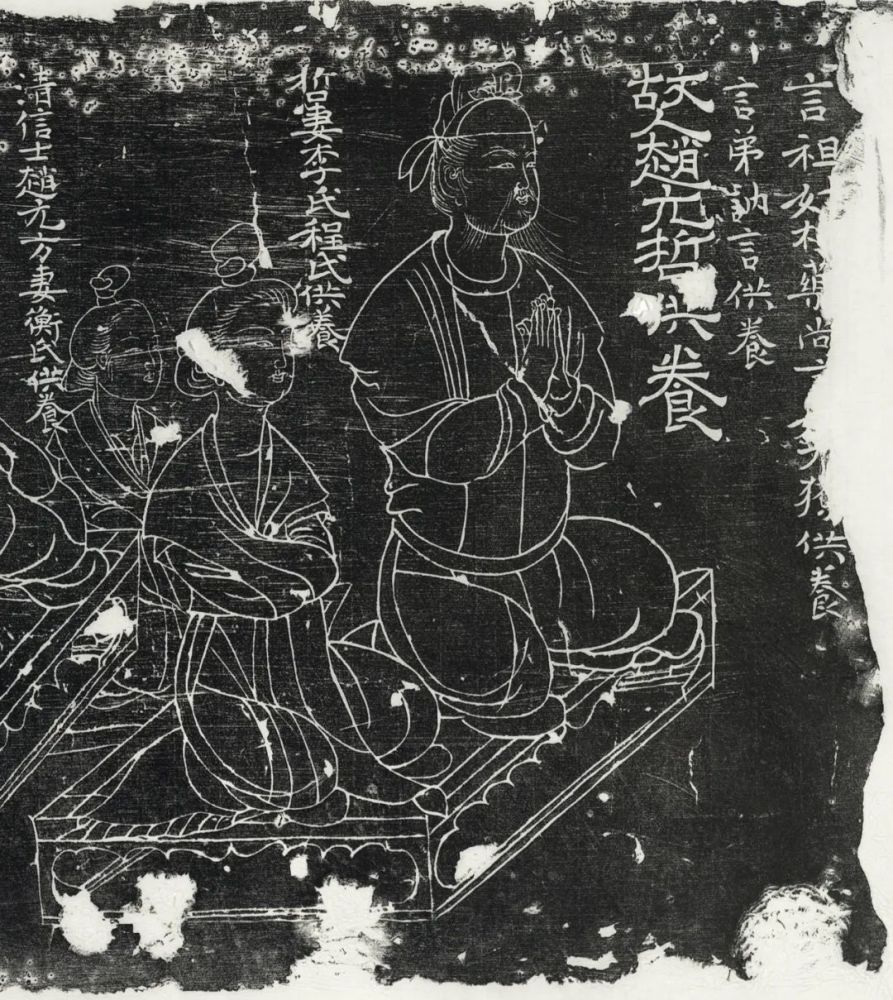 言祖 供養
言弟訥言供養
故人趙元哲供養
哲妻李氏程氏供養
清信士趙元方妻衡氏供養